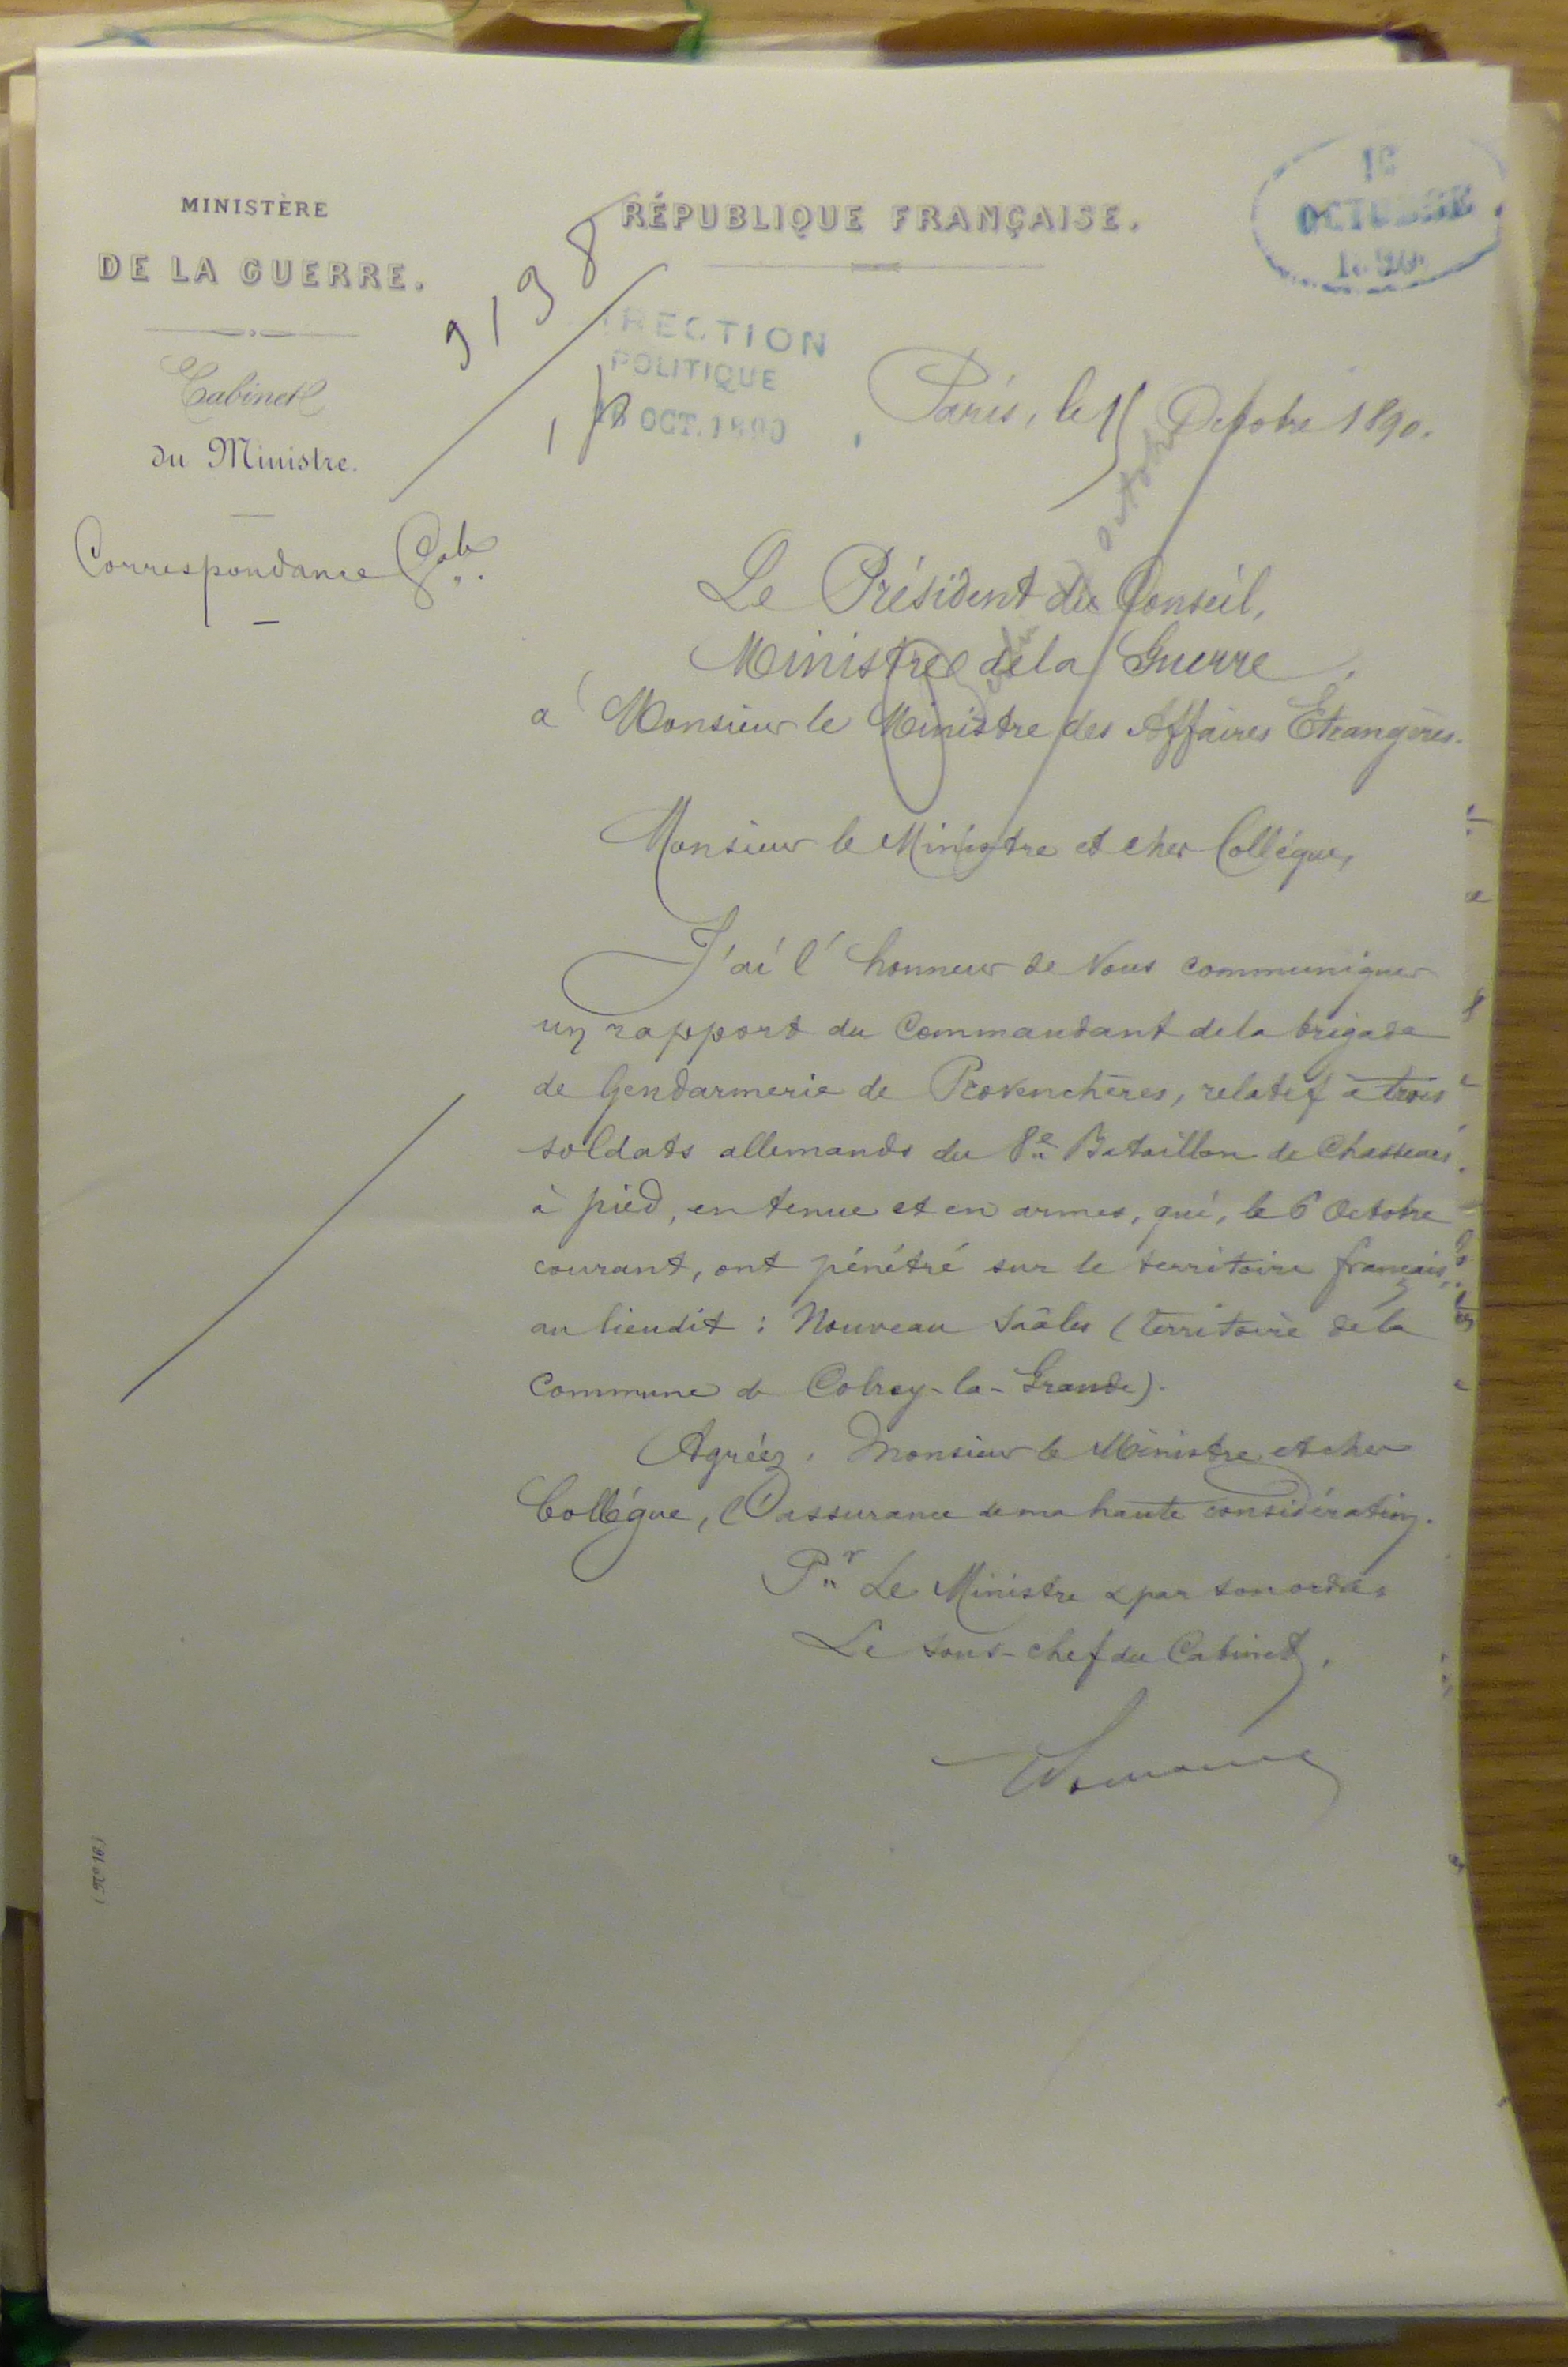 MINISTÈRE
DE LA GUERRE.
Cabinet
du Ministre.
Correspondance Gale
RÉPUBLIQUE FRANÇAISE.
9198
16
OCTOBRE
1890
RECTION
POLITIQUE
16 OCT. 1890
Paris, le 15 Octobre 1890.
Le Président du Conseil,
Ministre de la Guerre,
a Monsieur le Ministre des Affaires Etrangères.
Monsieur le Ministre et cher Collégue,
J'ai l'honneur de Vous communiquer
un rapport du Commandant de la brigade
de Gendarmerie de Provenchères, relatif à trois
soldats allemands du 8e Bataillon de Chasseurs
à pied, en tenue et en armes, qui, le 6 Octobre
courant, ont pénétré sur le territoire français,
au lieudit : Nouveau Saâles (territoire de la
Commune de Colroy-la-Grande).
Agréez, Monsieur le Ministre et cher
Collégue, l'assurance de ma haute considération.
Pr Le Ministre & par son ordre,
Le sous-chef du Cabinet,
(No 16)